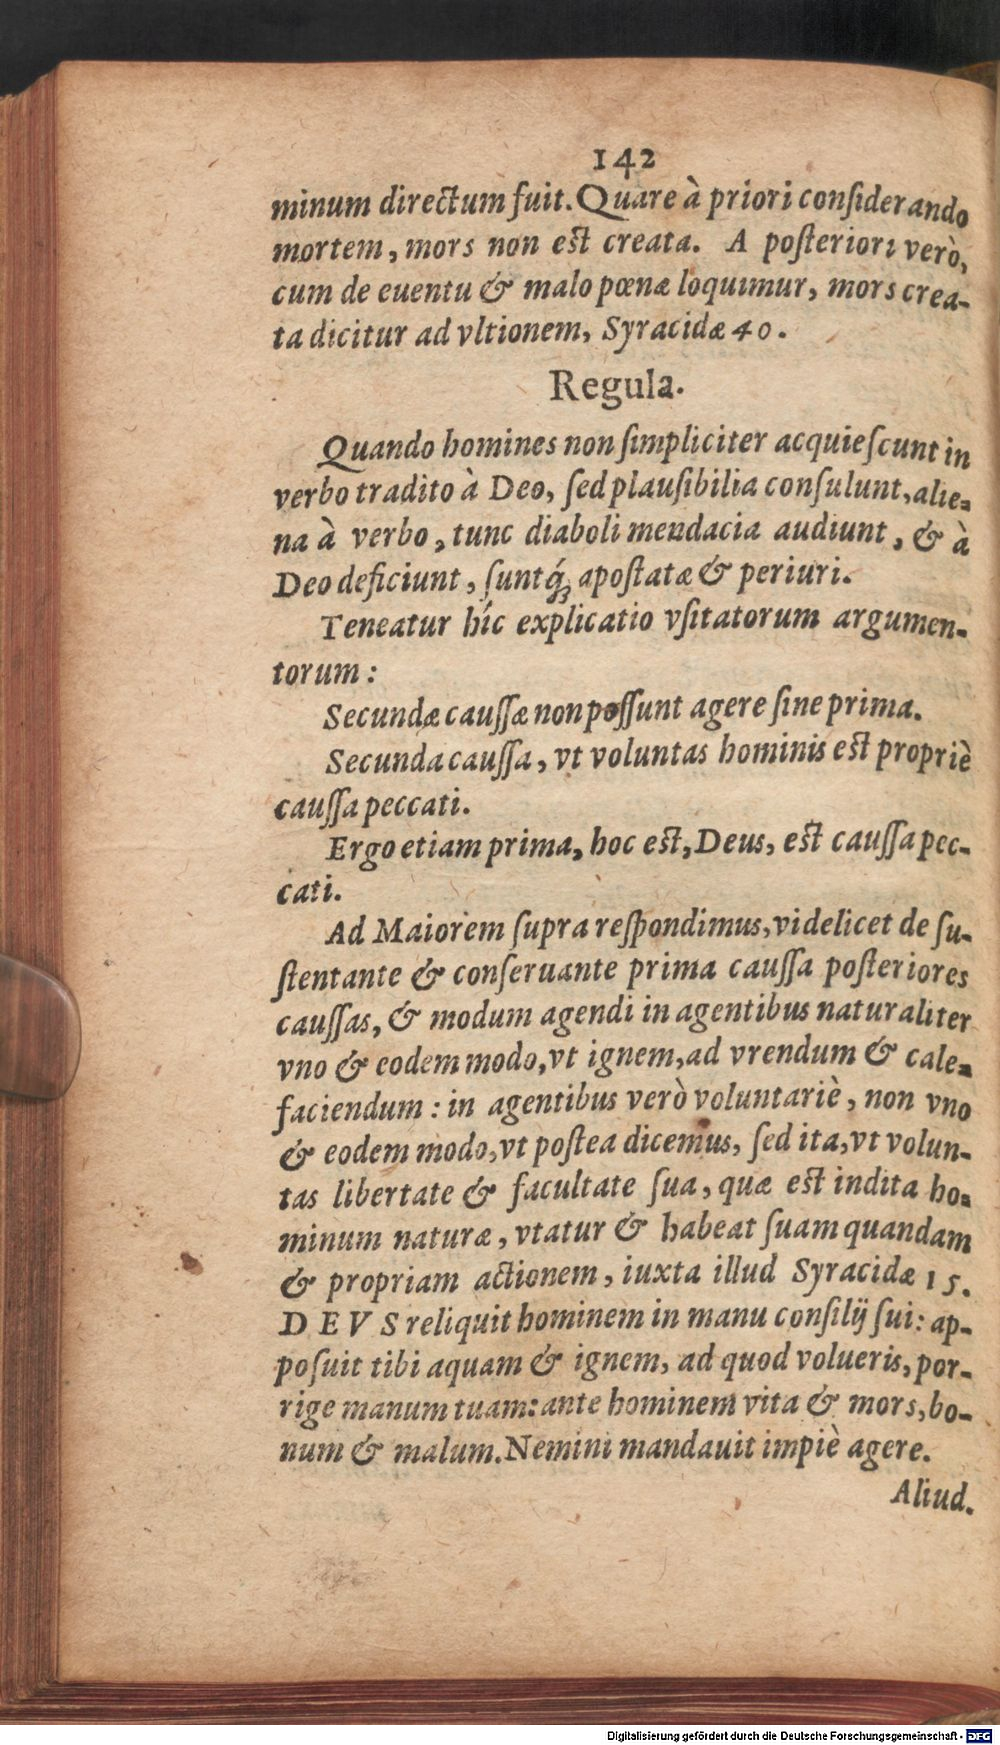 142
minum directum fuit. Quare à priori conſiderando
mortem, mors non est creata. A poſteriori verò,
cum de euentu & malo pœnæ loquimur, mors crea-
ta dicitur ad vltionem, Syracidæ 40.
Regula.
Quando homines non ſimpliciter acquieſcunt in
verbo tradito à Deo, ſed plauſibilia conſulunt, alie-
na à verbo, tunc diaboli mendacia audiunt, & à
Deo deficiunt, ſuntq́ꝫ apoſtatæ & periuri.
Teneatur híc explicatio vſitatorum argumen-
torum:
Secundæ cauſſæ non poſſunt agere ſine prima.
Secunda cauſſa, vt voluntas hominis est propriè
cauſſa peccati.
Ergo etiam prima, hoc est, Deus, est cauſſa pec-
cati.
Ad Maiorem ſupra reſpondimus, videlicet de ſu-
ſtentante & conſeruante prima cauſſa poſteriores
cauſſas, & modum agendi in agentibus naturaliter
vno & eodem modo, vt ignem, ad vrendum & cale-
faciendum: in agentibus verò voluntariè, non vno
& eodem modo, vt poſtea dicemus, ſed ita, vt volun-
tas libertate & facultate ſua, quæ est indita ho-
minum naturæ, vtatur & habeat ſuam quandam
& propriam actionem, iuxta illud Syracidæ 15.
DEVS reliquit hominem in manu conſilij ſui: ap-
poſuit tibi aquam & ignem, ad quod volueris, por-
rige manum tuam: ante hominem vita & mors, bo-
num & malum. Nemini mandauit impiè agere.
Aliud.
Digitalisierung gefördert durch die Deutsche Forschungsgemeinschaft - DFG